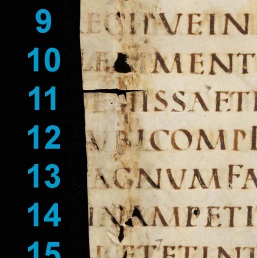 9 EGITVEIN
10 LEGIMENT
11 EGISSAETI
12 AVRICOMPI
13 AGNVMFA
14 INAMPETI
15 RETETINT